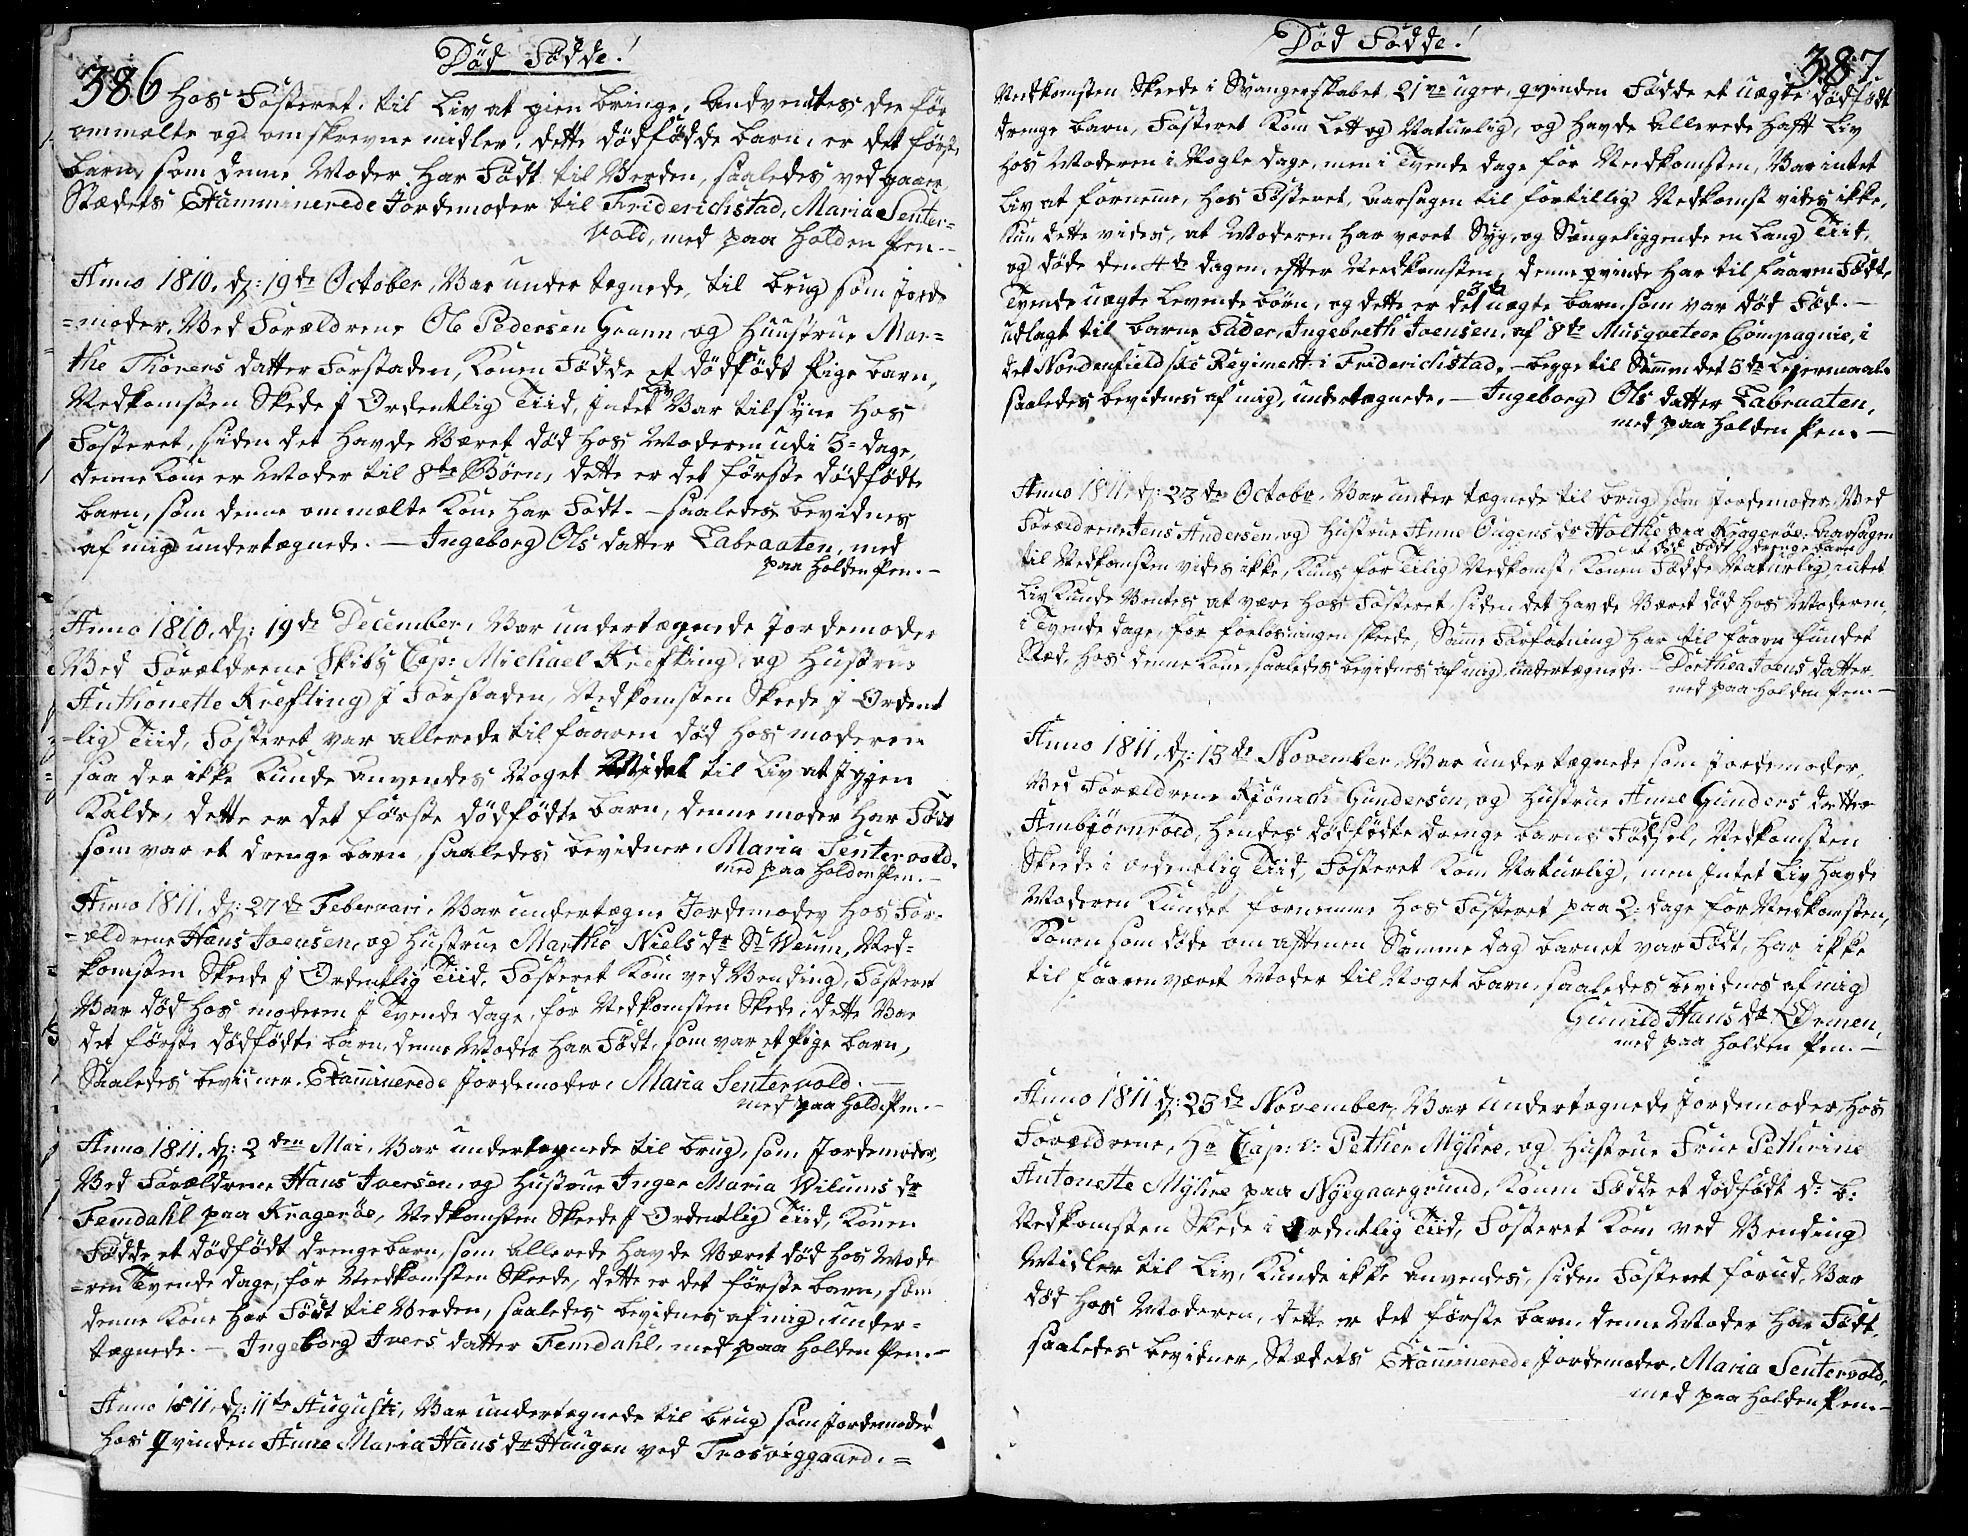 Død Fødde!
386 Hos Fosteret. til Liv at gien bringe, Andventes de før
ommelte og omskrevne midler, dette dødfødde barn, er det først
barn som denne Moder har Født til Verden, saaledes ved gaaer
Stædets Examminerede Jordemoder til Friderichstad, Maria Senter-
vold, med paa holden Pen.-
Anno 1810, d: 19de October, Var under tegnede, til brug som Jorde
=moder, Ved Forældrene Ole Pedersen Graner og Huustrue Mar=
the Thorers datter Forstaden, Konen Fødde et dødfødt Pige barn,
Nedkomsten Skede J Ordentlig Tiid, Intet Liv Var tilsyne hos
Fosteret, siden det havde Været død hos Moderen udi 3= dage,
denne Kone er Moder til 8te Børn, dette er det første dødfødte
barn, som denne ommelte Kone har Født. - saaledes bevidnes
af mig undertegnede. - Ingeborg Ols datter Labraaten, med
paa holden Pen. -
Anno 1810, d: 19de December, Var undertegnede Jordemoder
Ved Forældrene Skibs Cap: Michael Krefting, og Hustrue
Anthonette Krefting J Forstaden, Nedkomsten Skeede J Ordent
-lig Tiid, Fosteret var allerede til faaren død hos moderen
saa der ikke kunde Anvendes Noget Midel til Liv at Jgjen
Kalde, dette er det første dødfødte barn, denne moder har Født
som var et drenge barn, saaledes bevidner, Maria Sentervold.
med paa holden Pen. -
Anno 1811, d: 27de Februari, Var undertegne Jordemoder hos For-
-ældrene Hans Joensen, og Hustrue Marthe Niels dr St Veum, Ned-
komsten Skeede J Ordentlig Tiid, Fosteret kom ved Vending, Fosteret
Var død hos moderen J Tvende dage, for Nedkomsten Skede, dette Var
det første dødfødte barn, denne Moder har Født, som var et Pige barn,
Saaledes bevidner, Examinerede Jordemoder, Maria Sentervold. -
med paa hold: Pen. -
Anno 1811. d: 2den Mai, Var undertegnede til brug, som Jordemoder,
Ved Forældrene Hans Iversen, og Hustrue Inger Maria Wilums dr
Femdahl paa Kragerøe, Nedkomsten Skeede J Ordentlig Tiid, Konen
Fødde et dødfødt drengebarn, som allerede havde Været død hos Mode
-ren Tvende dage, for Nedkomsten Skeede, dette er det første barn, som
denne Kone har Født til Verden, saaledes bevidnes af mig under-
tegnede. - Ingeborg Ivers datter Femdahl, med paa holden Pen. -
Anno 1811, d: 11te Augusti, Var undertegnede til brug som Jordemoder
hos Qvinden Anne Maria Hans dr Haugen ved Trosviggaard. =
Død Fødde!
387
Nedkomsten Skeede i Svangerskabet 21ve uger, qvinden Fødde et uægte dødfødt
drenge barn, Fosteret kom Let og Naturlig, og havde allerede haft Liv
hos Moderen i Nogle dage, men i Tvende dage før Nedkomsten, Var intet
Liv at fornemme, hos Fosteret, aarsagen til fortillig Nedkomst vides ikke,
kun dette vides, at Moderen har været Syg, og Sengeliggende en Lang Tiid,
og døde den 4de dagen, efter Nedkomsten, denne qvinde har til faaren Født
Tvende uægte Levende børn, og dette er det 3de uægte barn, som var død Fød. -
udlagt til barne Fader, Ingebreth Joensen, af 8de Musqveteer Compagnie, i
det Nordenfieldske Regiment i Friderichstad, - begge til Sammen det 5te Lejermaal.
saaledes bevidnes af mig, undertegnede. - Ingeborg Ols datter Labraaten,
med paa holden Pen. -
Anno 1811, d: 23de Octobr. Var under tegnede til brug som Jordemoder, Ved
Forældrene Jens Andersen, og Hustrue Anne Ougens dr Holthe paa Kragerøe. Aarsagen
til Nedkomsten vides ikke, Kuns for Tilig Nedkomst, Konen Fødde et død Født drenge barn Naturlig, intet
Liv Kunde Ventes, at være hos Fosteret siden det havde Været død hos Moderen,
i Tvende dage, før forløsningen skeede, Samme Forfatning har til faarn fundet
Sted, hos denne Kone, saaledes bevidnes af mig undertegnede. - Dorthea Joens datter
med paa holden Pen. -
Anno 1811, d: 13de November, Var under tegnede som Jordemoder,
Ved Forældrene Kjønich Gundersen, og Hustrue Anne Gunders datter
Ambjørnrød, hendes dødfødte drenge barns Fødsel, Nedkomsten
Skeede i ordentlig Tiid, Fosteret kom Naturlig, men Intet Liv havde
Moderen Kundet fornemme hos Fosteret paa 2: dage for Nedkomsten,
Konen som døde om aftenen Samme dag barnet var Født, har ikke
til faaren været Moder til Noget barn, saaledes bevidnes af mig
Gunild Hans dr Ørmen,
med paa holden Pen. -
Anno 1811 d: 23de November, Var undertegnede Jordemoder, hos
Forældrene, Hr Cap: v: Pether Myhre, og Hustrue Frue Petherine
Antonette Myhre paa Nyegaargrund, Konen Fødde et dødfødt d: b:
Nedkomsten Skede i Ordentlig Tiid, Fosteret kom ved Vending
Midler til Liv, Kunde ikke anvendes, siden Fosteret forud, Var
død hos Moderen, dette er det første barn, denne Moder har Født,
saaledes bevidner, Stædets Examinerede Jordemoder, Maria Sentervold,
med paa holden Pen. -